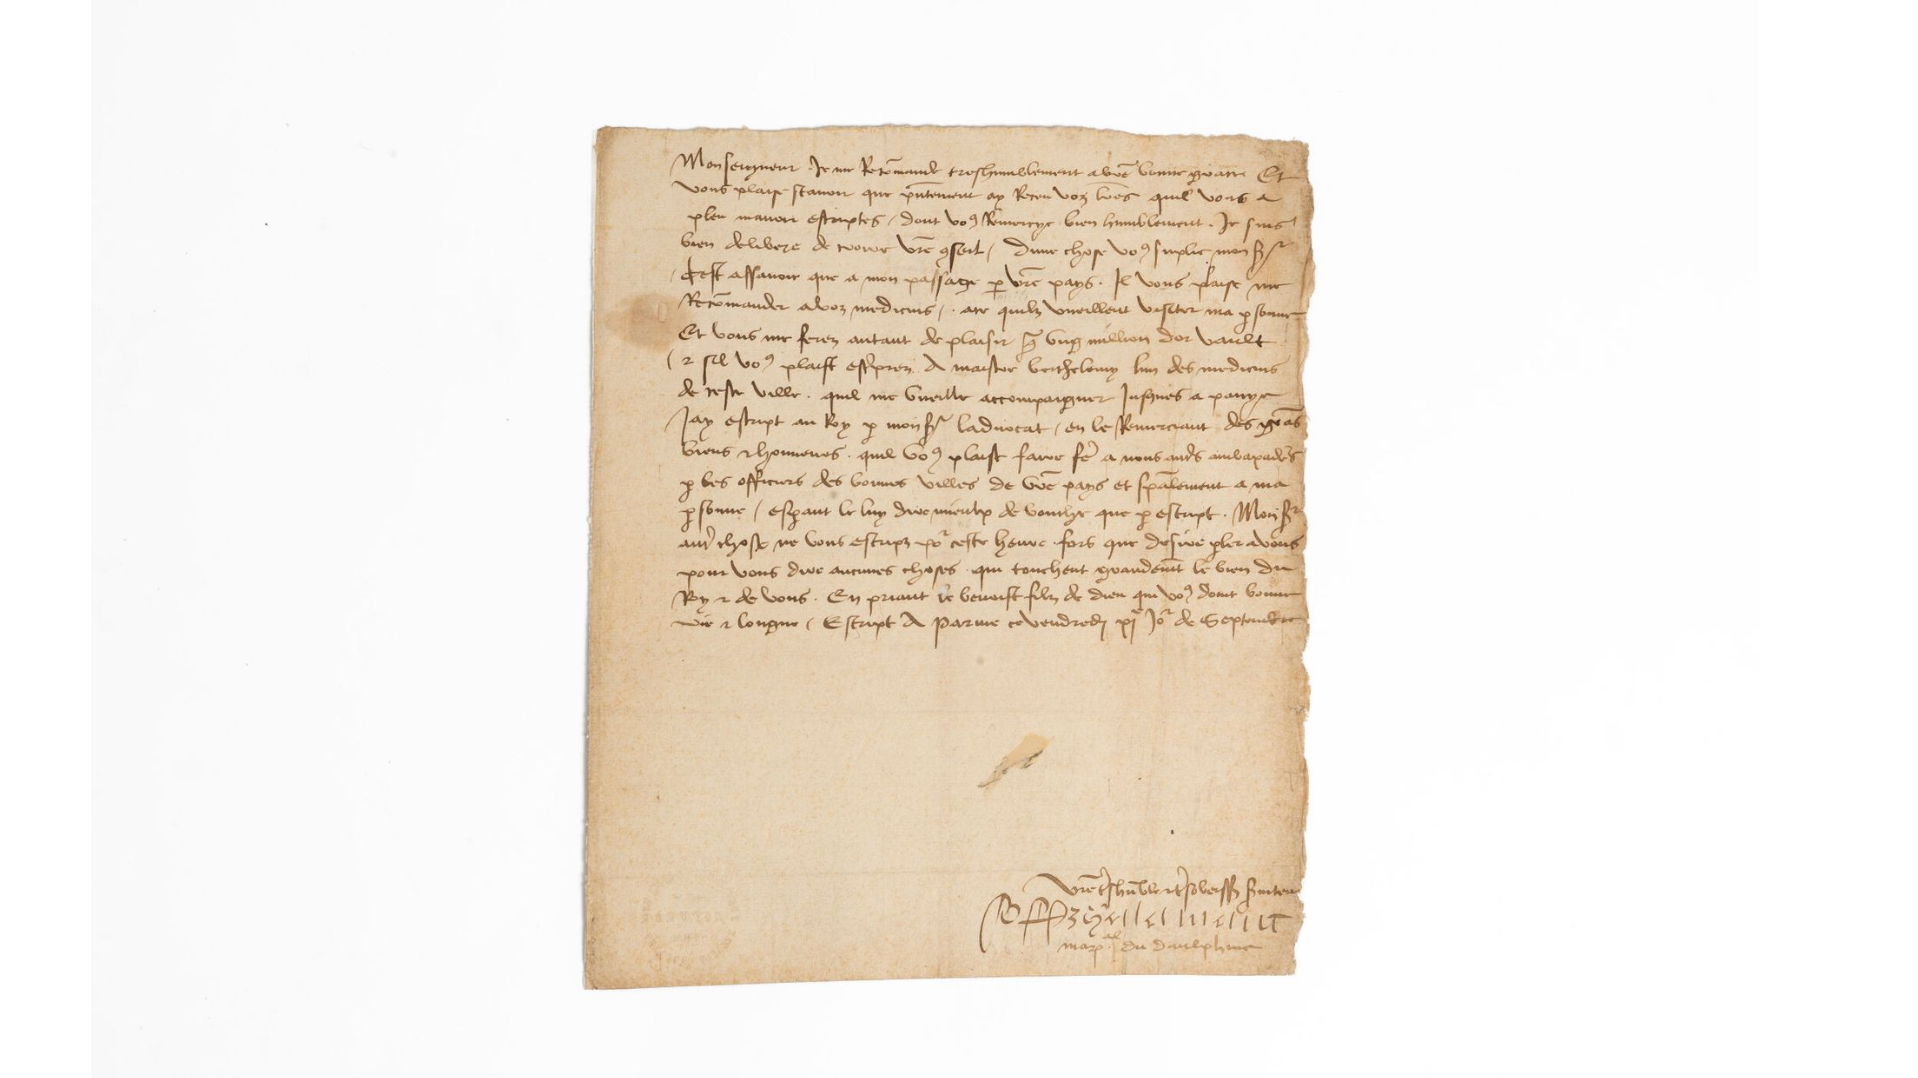 Monseigneur Je me Recōmande treshumblement a vrē bonne grace Et
vous plaise scavoir que pñtement ay Receu voz lrēs quil vous a
pleu mavoir escriptes / dont voꝰ Remercye bien humblement. Je suis
bien delibere de croire vrē ꝯseil / Dune chose voꝰ suplie monsʳ
/ Cest assavoir que a mon passage p vrē pays. Il vous plaise me
Recōmander a voz medicins / . ace quilz vueillent visiter ma psonne
Et vous me ferez autant de plaisir q̄ ung million dor vault
/ ⁊ sil voꝰ plaist A maistre berthelemy lun des medicins
de ceste ville . quil me vueille accompaigner Jusques a pavye
Jay escript au Roy p monsʳ ladvocat / en le Remerciant des grās
biens ⁊ honneurs . quil voꝰ plaist faire a nous ambaxadrs
p les officiers des bonnes villes de vrē pays et spālement a ma
psonne / espant le luy dire mieulx de bouche que p escript . Monsʳ
autʳ chose ne vous escripz poʳ ceste heure . fors que desire pler a vous
pour vous dire aucunes choses . qui touchent grandemt le bien du
Roy ⁊ de vous . En priant le benoist filz de dieu qui voꝰ doint bonne
vie ⁊ longue / Escript A Parme ce vendredj xjᵉ Joʳ de Septembre
du daulphine